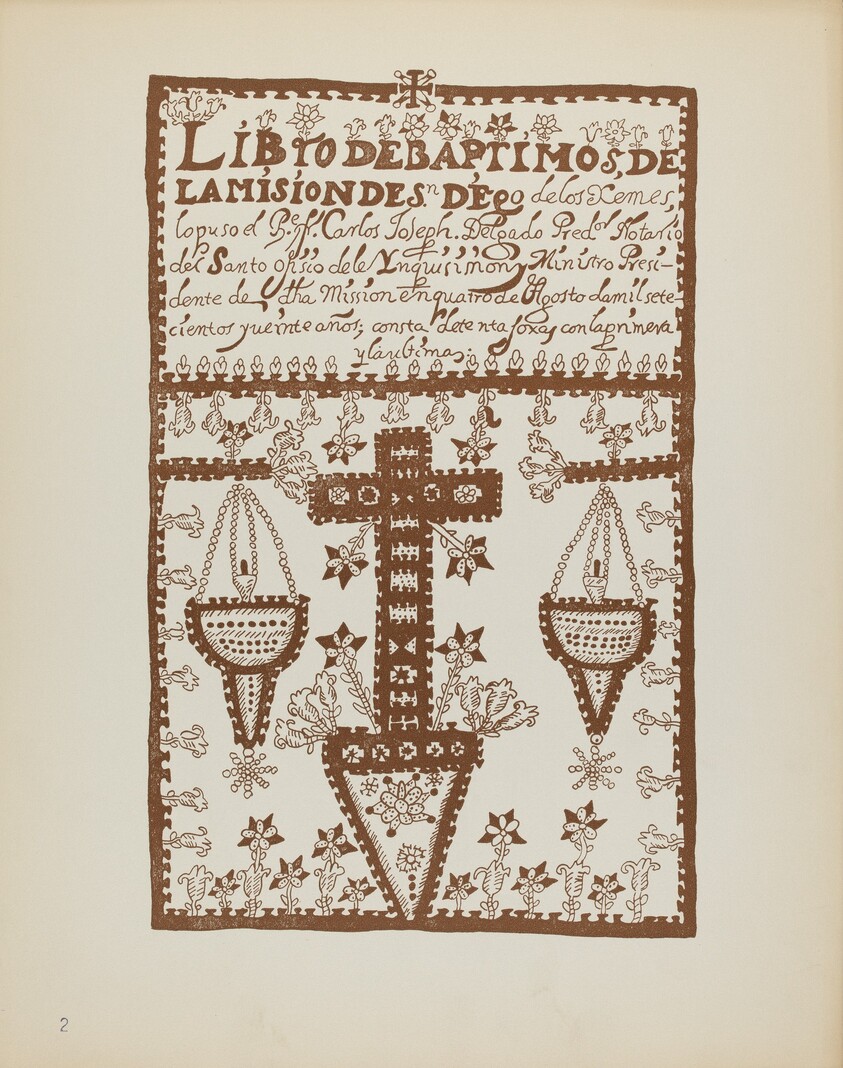 LIBrO DE BAPTIMOS, DE
LA MISION DE Sn DEgo de los Xemes,
lo puso el R.e fr. Carlos Joseph. Delgado Pred.or Notario
del Santo ofisio de le Ynquisision, y Ministro Presi-
dente de dha Mission en quatro de Agosto de mil sete-
cientos y ueinte años; consta de foxas con la primera
y la ultima;
2